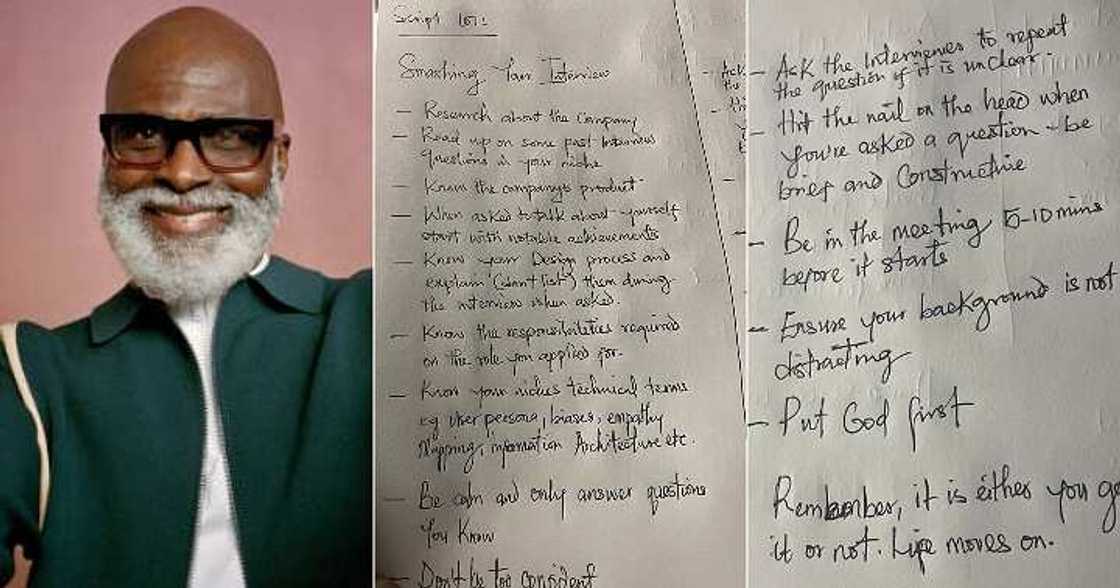 Script 101:
Smashing Your Interview
- Research about the Company
- Read up on some past Interview
questions in your niche
- Know the company's product
- When asked to talk about yourself
start with notable achievements
- Know your Design process and
explain (don't list) them during
the interview when asked.
- Know the responsibilities required
on the role you applied for.
- Know your niches technical terms
eg User persona, biases, empathy
Mapping, information Architecture etc.
- Be calm and only answer questions
You Know
- Don't be too confident
- Ask
the
- Ask the Interviewer to repeat
the question if it is unclear.
- Hit the nail on the head when
you're asked a question - be
brief and Constructive
- Be in the meeting 5-10 mins
before it starts
- Ensure your background is not
distracting
- Put God first
Remember, it is either you ge
it or not. Life moves on.